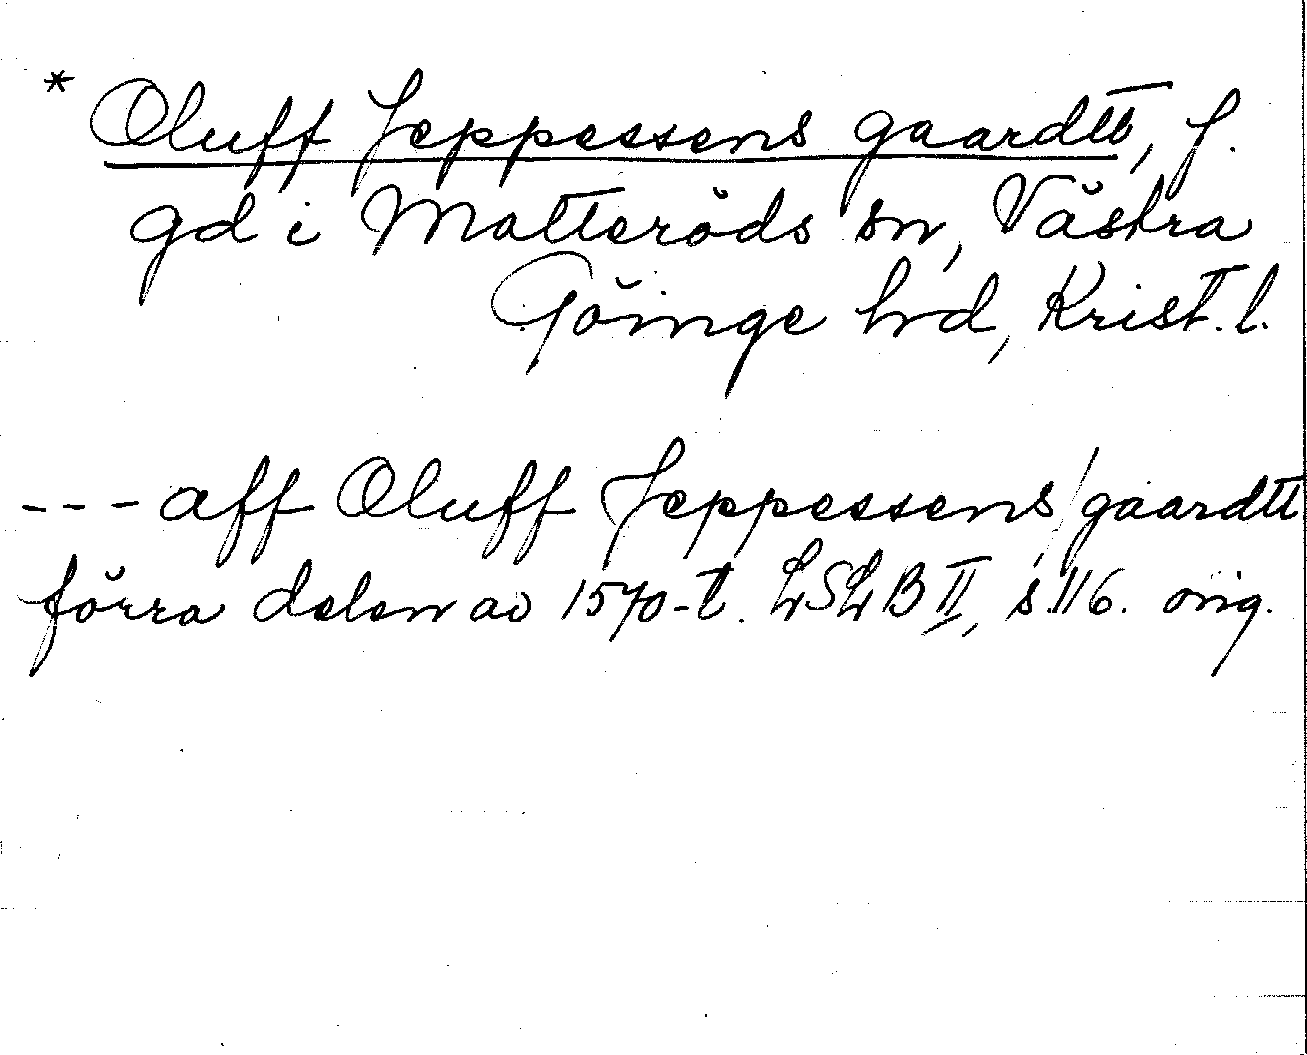 * Oluff Jeppessens gaardtt, f.
gd i Matteröds sn, Västra
Göinge hrd, Krist. l.
--- aff Oluff Jeppessens / gaardtt
förra delen av 1570-t. LSLB II, s. 116. orig.